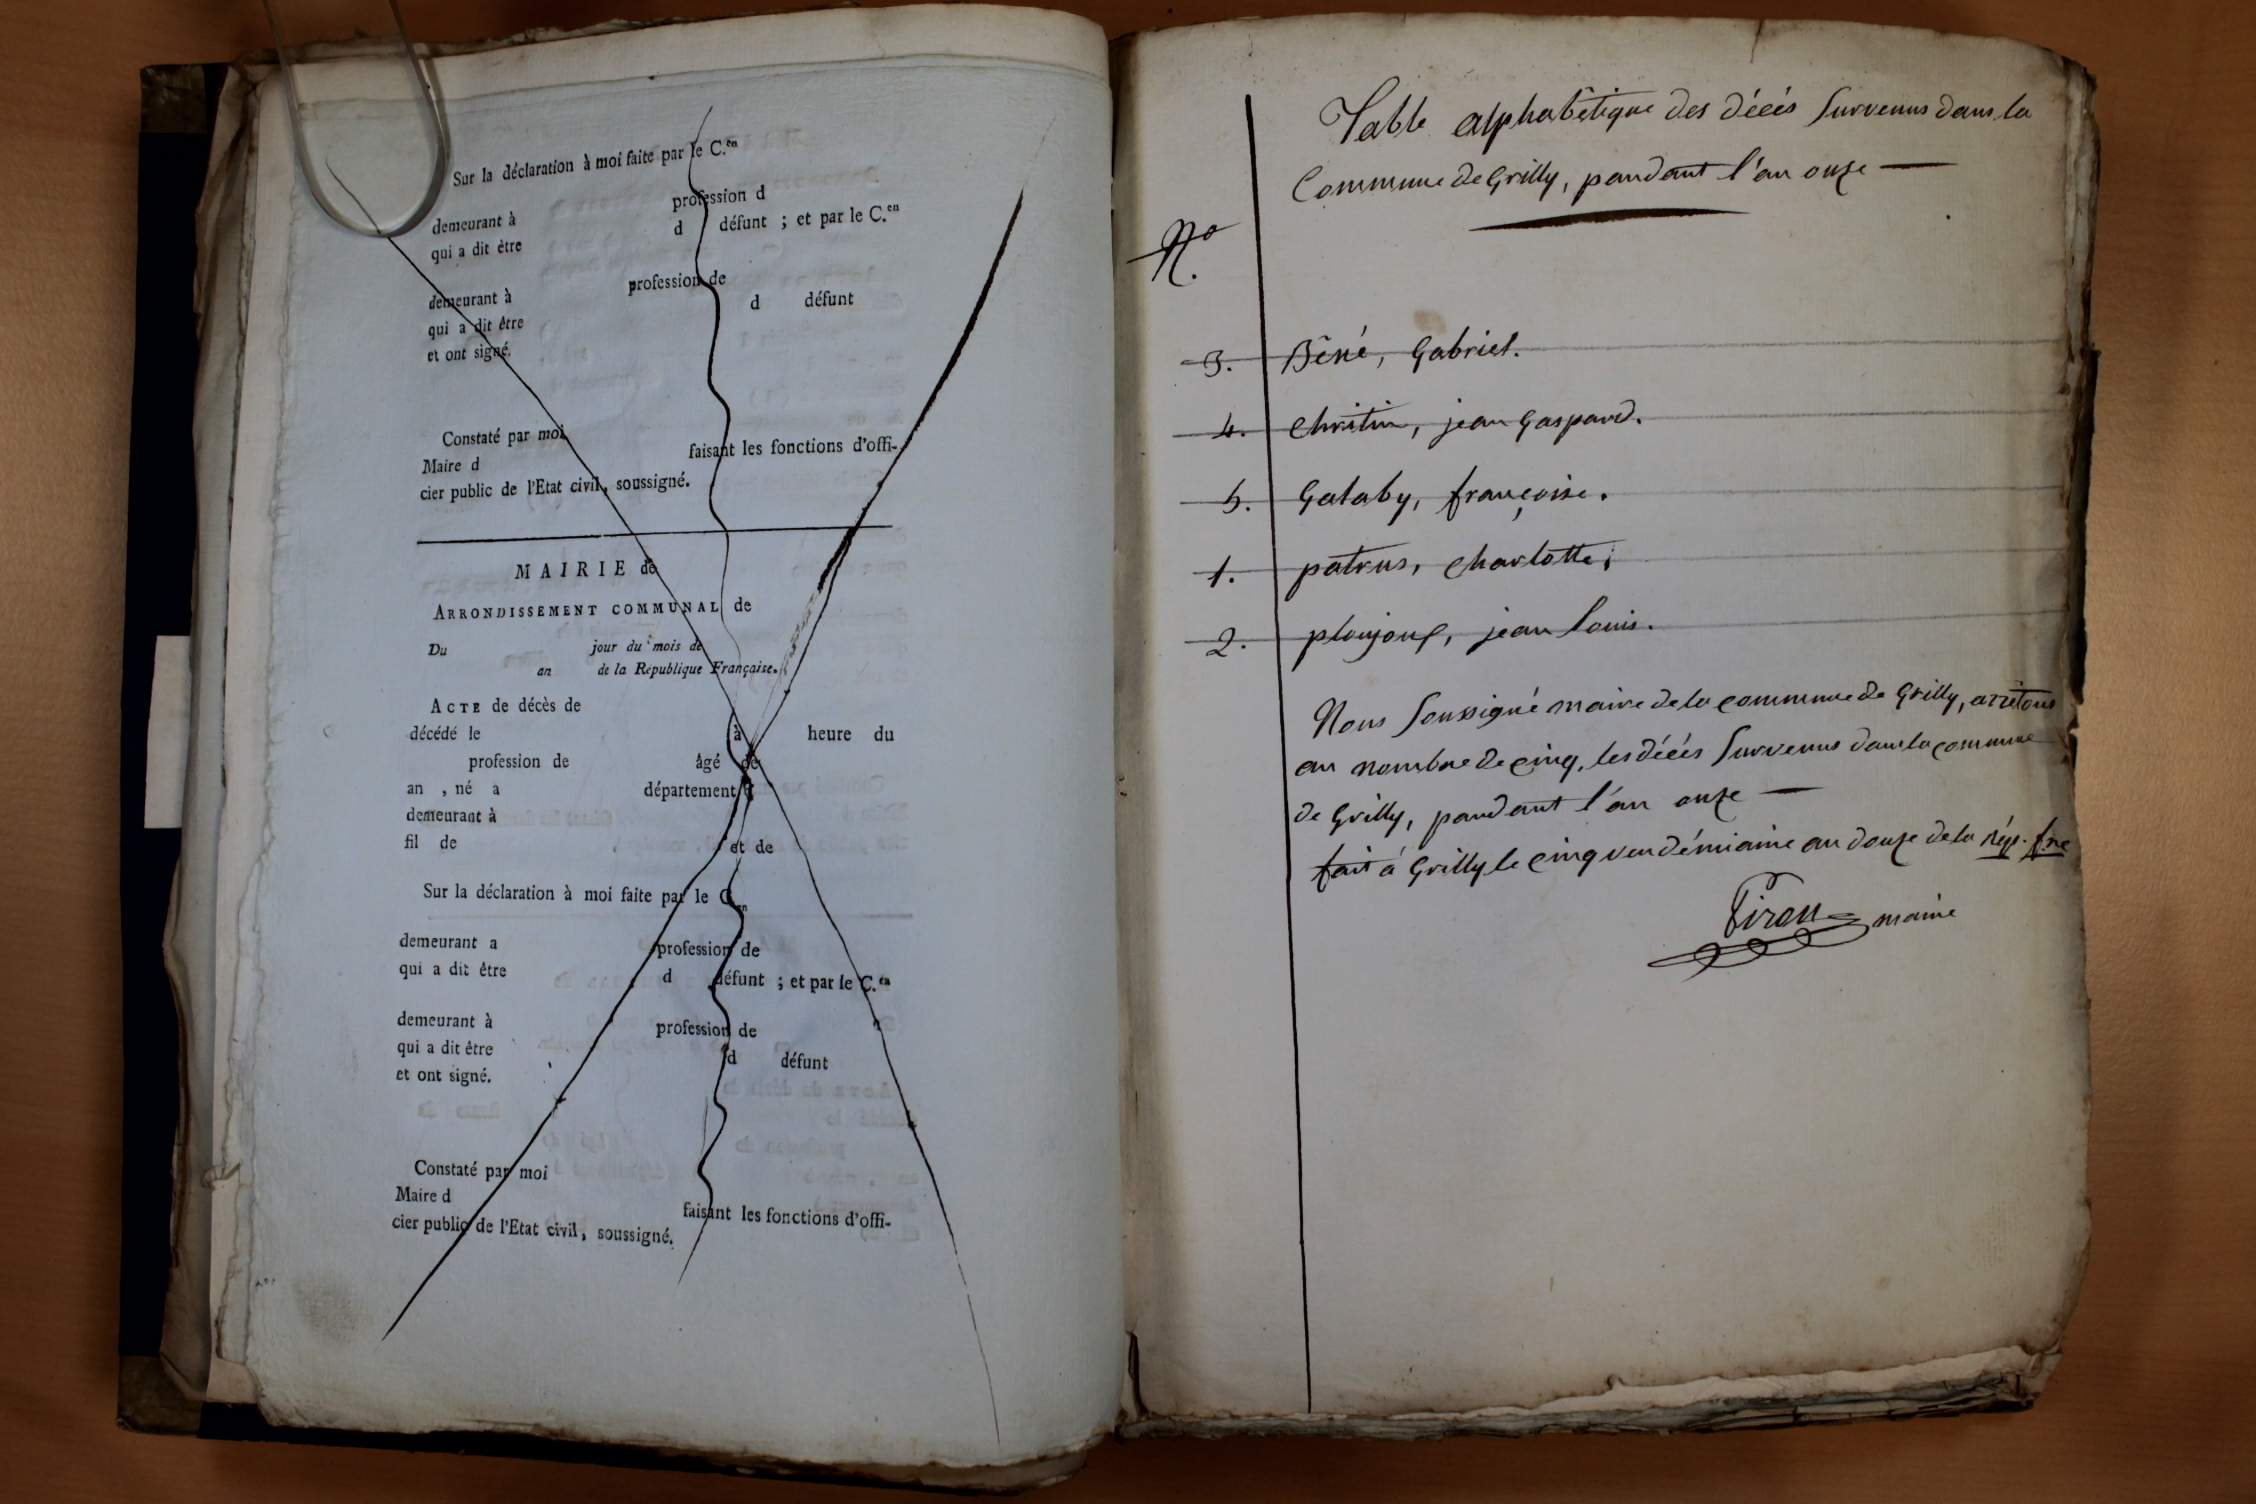 Sur la déclaration à moi faite par le C.en
profession d
demeurant à
d défunt ; et par le C.en
qui a dit être
profession de
demeurant à
d défunt
qui a dit être
et ont signé.
Constaté par moi
Maire d faisant les fonctions d'offi-
cier public de l'Etat civil, soussigné.
MAIRIE de
ARRONDISSEMENT COMMUNAL de
Du jour du mois de
an de la République Française.
ACTE de décès de
décédé le à heure du
profession de âgé de
an , né a département d
demeurant à
fil de et de
Sur la déclaration à moi faite par le C.en
demeurant a profession de
qui a dit être d défunt ; et par le C.en
demeurant à profession de
qui a dit être d défunt
et ont signé.
Constaté par moi
Maire d faisant les fonctions d'offi-
cier public de l'Etat civil, soussigné.
Table alphabêtique des décés survenus dans la
Commune de Grilly, pandant l'an onze —
No.
3. Béné, Gabriel.
4. Chritin, jean Gaspard.
5. Galaby, françoise.
1. patrus, Charlotte.
2. jean Louis.
Nous soussigné maire de la commune de Grilly, arrêtons
au nombre de cinq, les décés survenus dans la commune
de Grilly, pandant l'an onze —
fait à Grilly le cinq vendémiaire an douze de la Rép. f.ne
Piron maire